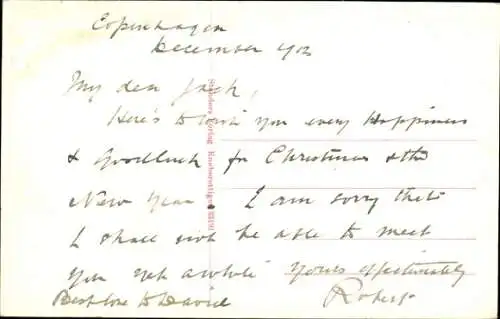 Copenhagen
December 1902
My dear Jack,
Here's to wish you every Happiness
& Goodluck for Christmas & the
New Year I am sorry that
I shall not be able to meet
you yet awhile Yours affectionately
Best love to David Robert